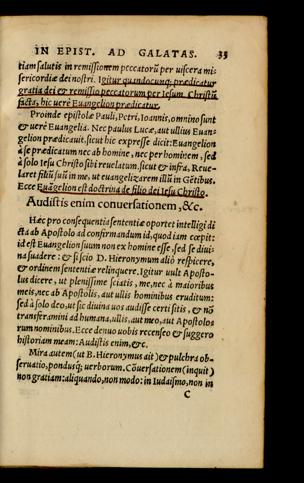 IN EPIST. AD GALATAS. 33
tiam salutis in remissionem peccatorũ per uiscera mi-
sericordiæ dei nostri. Igitur quandocunq; prædicatur
gratia dei & remissio peccatorum per Iesum Christũ
facta, hic uerè Euangelion prædicatur.
Proinde epistolæ Pauli, Petri, Ioannis, omnino sunt
& uerè Euangelia. Nec paulus Lucæ, aut ullius Euan-
gelion prædicauit. sicut hic expresse dicit: Euangelion
à se prædicatum nec ab homine, nec per hominem, sed
à solo Iesu Christo sibi reuelatum. sicut & infra, Reue-
laret filiũ suũ in me, ut euangelizarem illũ in Gẽtibus.
Ecce Euãgelion est doctrina de filio dei Iesu Christo.
Audistis enim conuersationem, &c.
Hæc pro consequentia sententiæ oportet intelligi di
cta ab Apostolo ad confirmandum id, quod iam cœpit:
id est Euangelion suum non ex homine esse, sed se diui-
na suadere: & si scio D. Hieronymum aliò respicere,
& ordinem sententiæ relinquere. Igitur uult Aposto-
lus dicere, ut plenissime sciatis, me, nec à maioribus
meis, nec ab Apostolis, aut ullis hominibus eruditum:
sed à solo deo, ut sic diuina uos audisse certi sitis, & nõ
transferamini ad humana, ullis, aut meo, aut Apostolos
rum nominibus. Ecce denuo uobis recenseo & suggero
historiam meam: Audistis enim, &c.
Mira autem (ut B. Hieronymus ait) & pulchra ob-
seruatio, pondusq; uerborum. Cõuersationem (inquit)
non gratiam: aliquando, non modo: in Iudaismo, non in
C